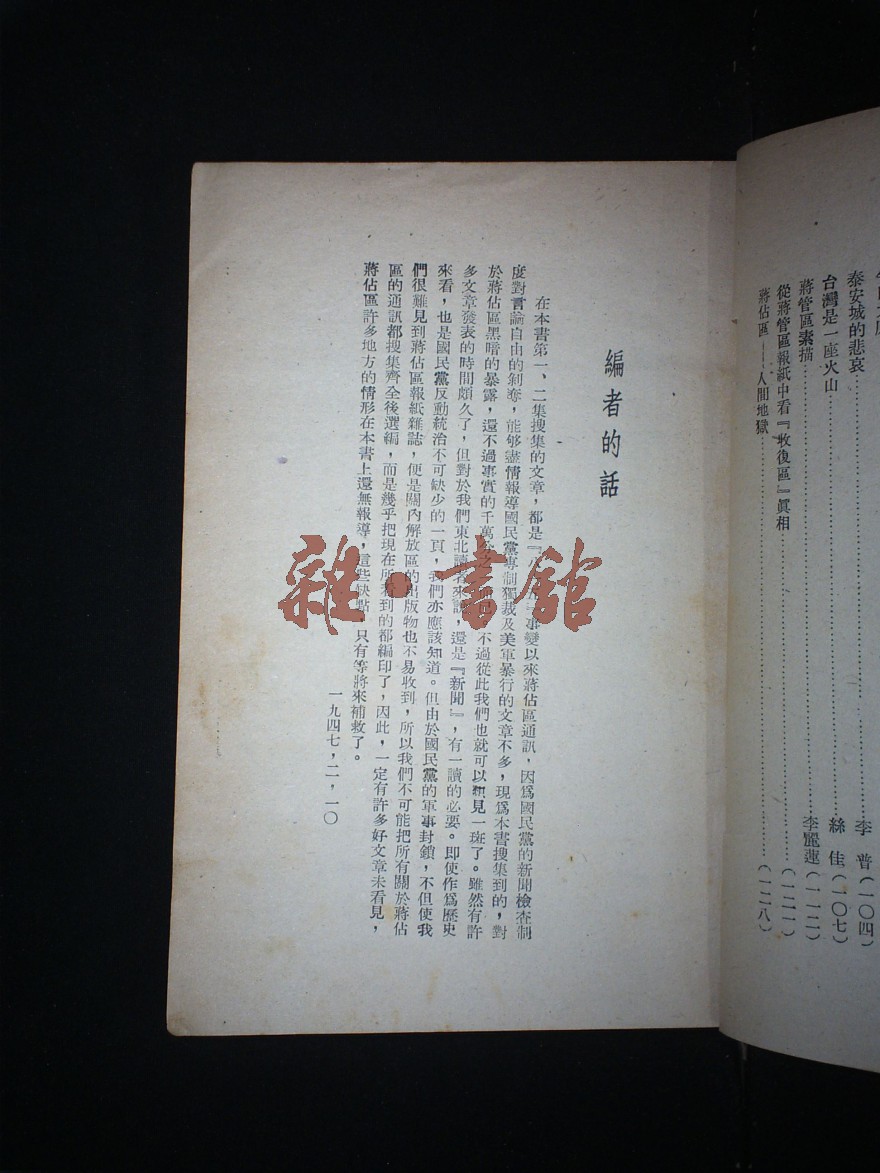 泰安城的悲哀………李　普（一〇四）
台灣是一座火山………絲　佳（一〇七）
蔣管區素描………李麗蓮（一一二）
從蔣管區報紙中看『收復區』眞相………（一二一）
蔣佔區——人間地獄………（一二八）
編者的話
在本書第一、二集搜集的文章，都是『八事變以來蔣佔區通訊，因爲國民黨的新聞檢查制
度對言論自由的剝奪，能够盡情報導國民黨專制獨裁及美軍暴行的文章不多，現爲本書搜集到的，對
於蔣佔區黑暗的暴露，還不過事實的千萬分之不過從此我們也就可以想見一斑了。雖然有許
多文章發表的時間頗久了，但對於我們東北讀者來說，還是『新聞』，有一讀的必要。即使作爲歷史
來看，也是國民黨反動統治不可缺少的一頁，我們亦應該知道。但由於國民黨的軍事封鎖，不但使我
們很難見到蔣佔區報紙雜誌，便是關內解放區的出版物也不易收到，所以我們不可能把所有關於蔣佔
區的通訊都搜集齊全後選編，而是幾乎把現在所看到的都編印了，因此，一定有許多好文章未看見，
蔣佔區許多地方的情形在本書上還無報導，這些缺點，只有等將來補救了。
一九四七，二，一〇
雜·書館